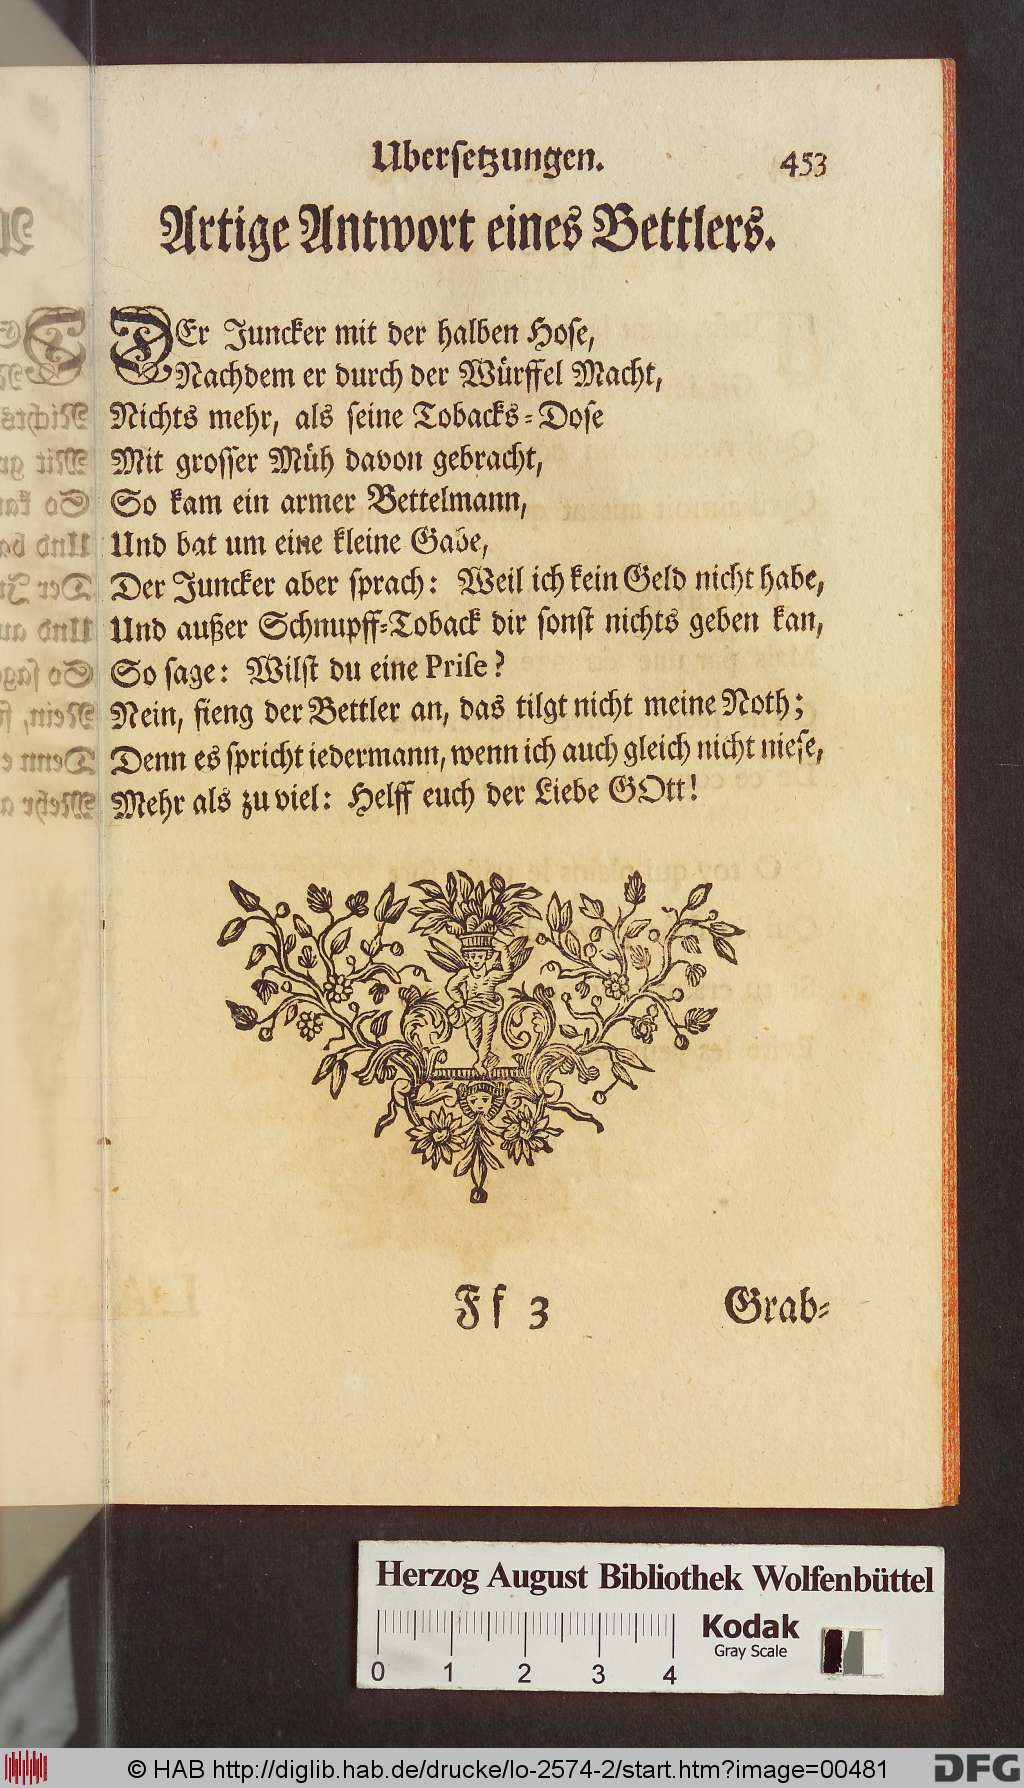 Ubersetzungen. 453
Artige Antwort eines Bettlers.
DEr Juncker mit der halben Hose,
Nachdem er durch der Würffel Macht,
Nichts mehr, als seine Tobacks-Dose
Mit grosser Müh davon gebracht,
So kam ein armer Bettelmann,
Und bat um eine kleine Gabe,
Der Juncker aber sprach: Weil ich kein Geld nicht habe,
Und außer Schnupff-Toback dir sonst nichts geben kan,
So sage: Wilst du eine Prise?
Nein, fieng der Bettler an, das tilgt nicht meine Noth;
Denn es spricht iedermann, wenn ich auch gleich nicht niese,
Mehr als zu viel: Helff euch der Liebe GOtt!
Ff 3 Grab-
Herzog August Bibliothek Wolfenbüttel
Kodak
Gray Scale
0 1 2 3 4
© HAB http://diglib.hab.de/drucke/lo-2574-2/start.htm?image=00481 DFG